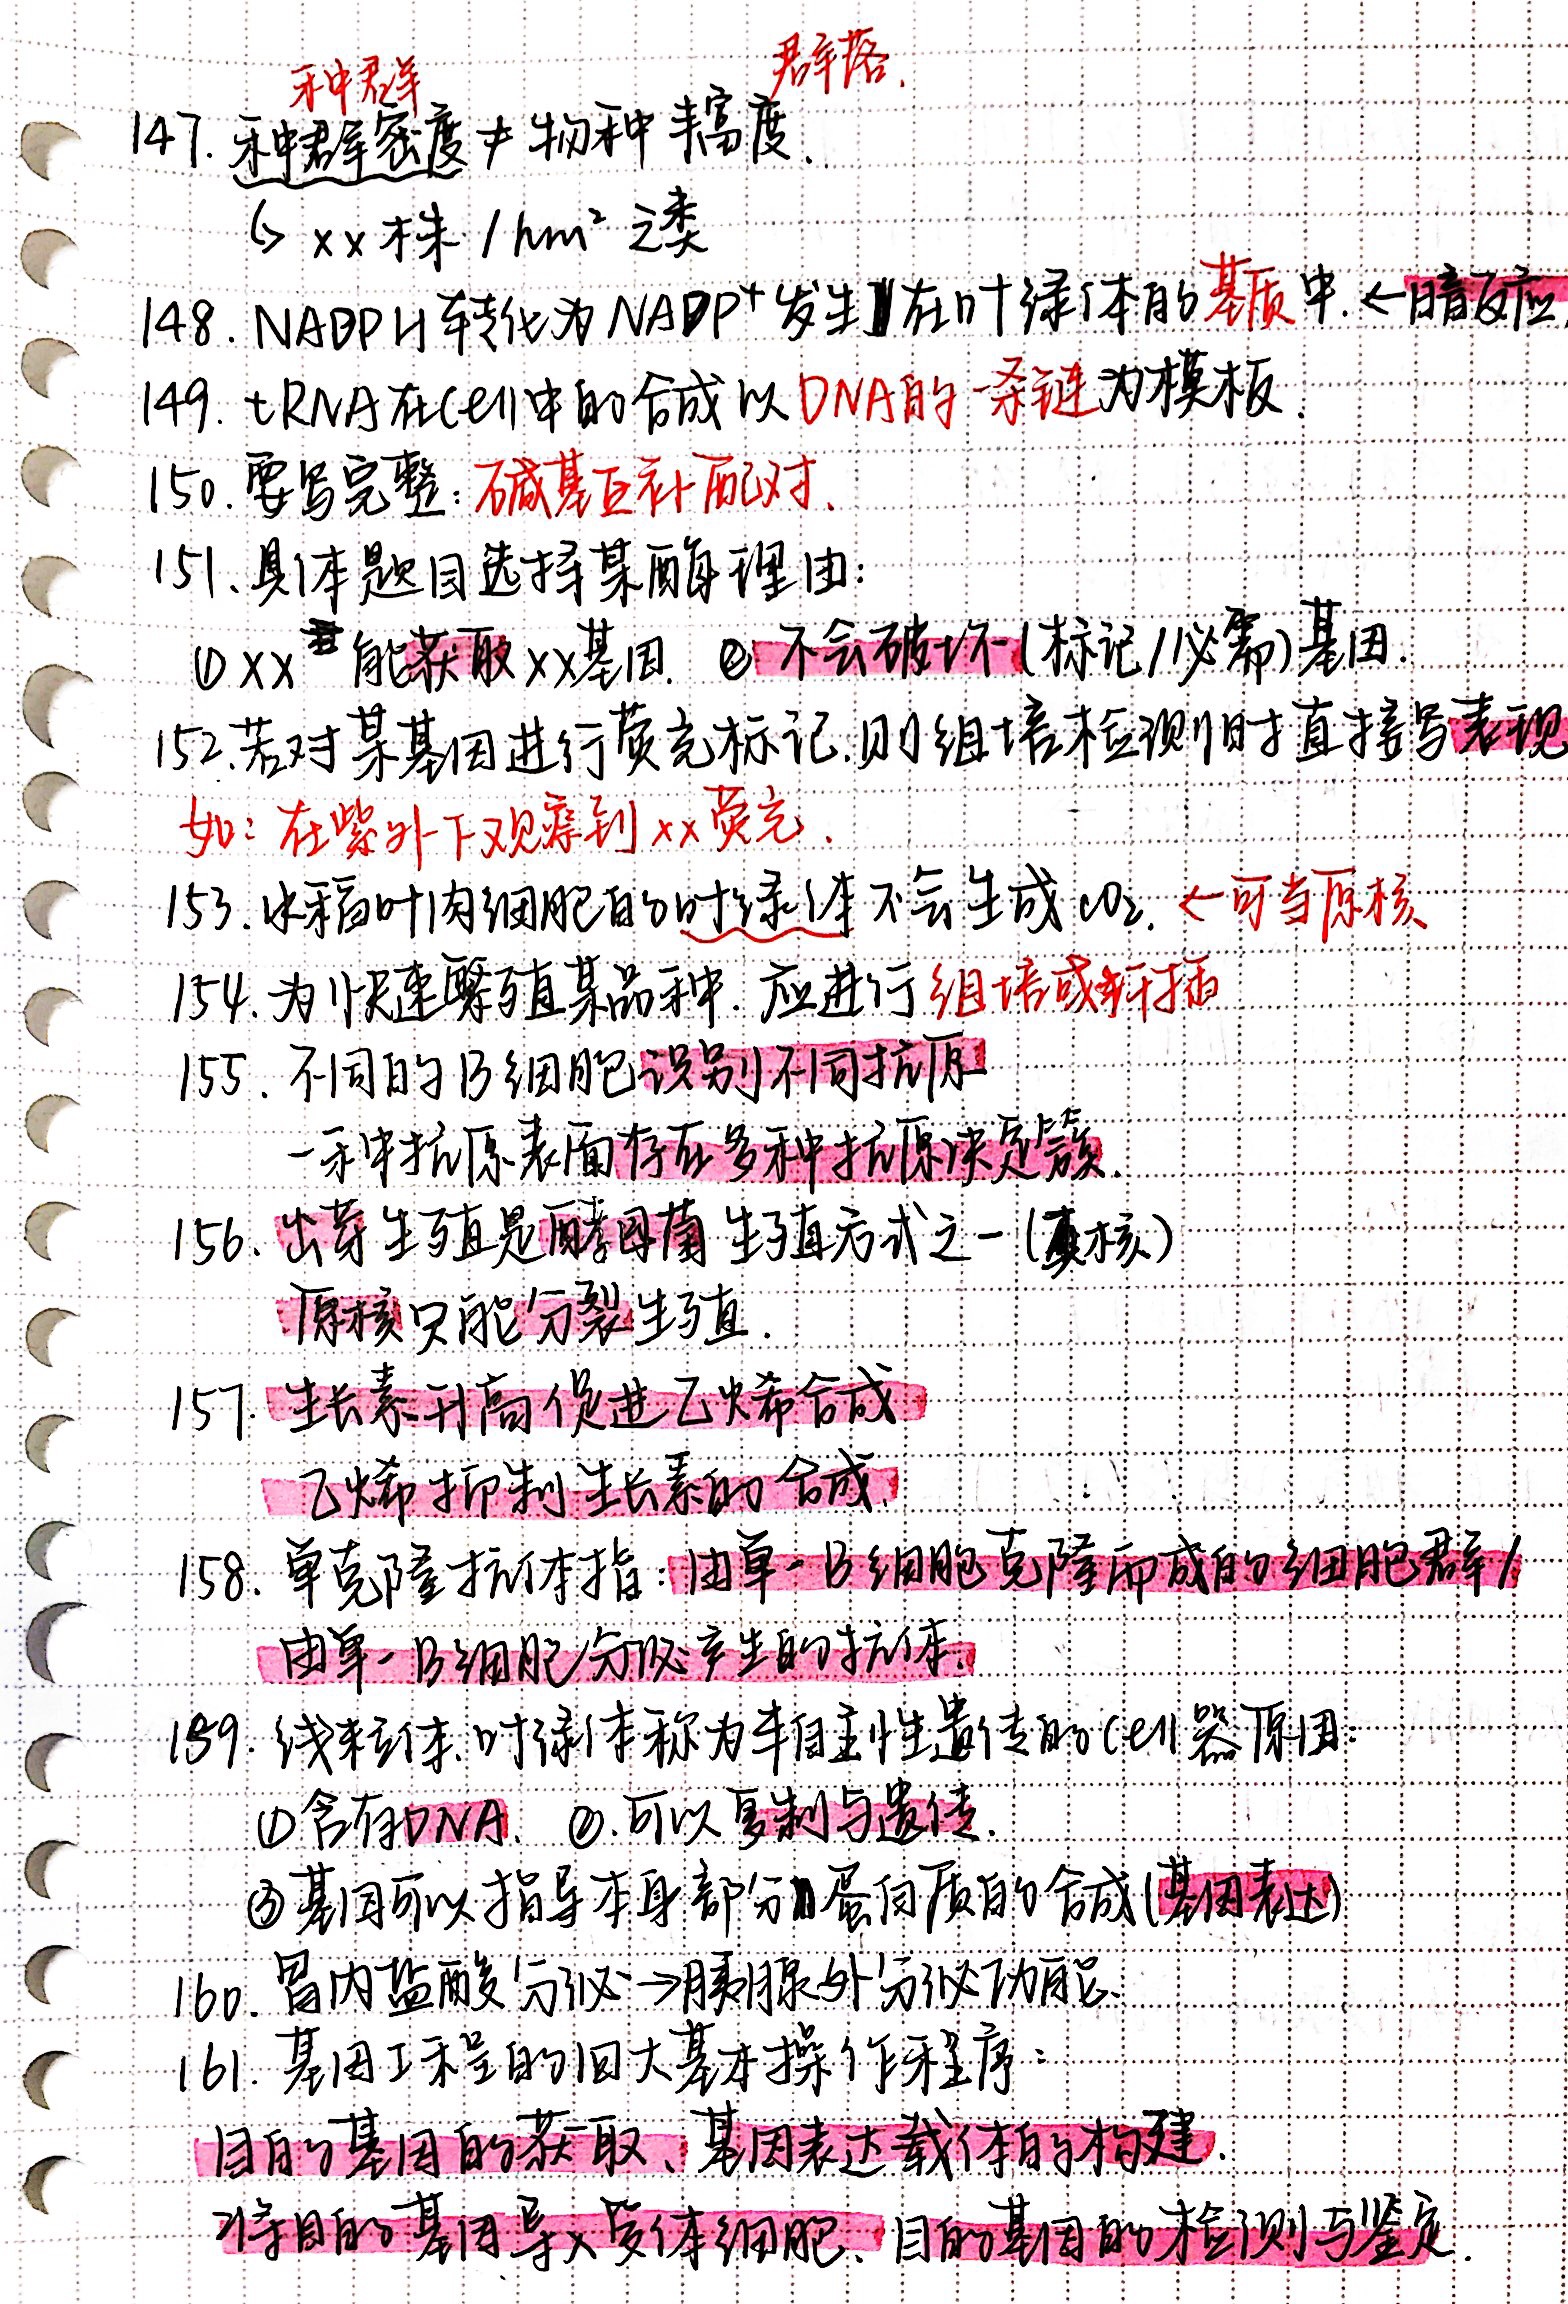 种群 群落.
147. 种群密度≠物种丰富度.
↳ xx株/hm² 之类
148. NADPH转化为NADP⁺发生在叶绿体的基质中.←暗反应
149. tRNA在cell中的合成以DNA的一条链为模板.
150. 要写完整: 碱基互补配对.
151、具体题目选择某酶理由:
①xx 能获取xx基因. ②不会破坏(标记/必需)基因.
152.若对某基因进行荧光标记.则组培检测时直接写表现
如: 在紫外下观察到xx荧光.
153.水稻叶肉细胞的叶绿体不会生成CO₂. ←可当原核
154.为快速繁殖某品种.应进行组培或扦插
155. 不同的B细胞识别不同抗原
一种抗原表面存在多种抗原决定簇.
156. 出芽生殖是酵母菌生殖方式之一(真核)
原核只能分裂生殖.
157. 生长素升高促进乙烯合成
乙烯抑制生长素的合成.
158. 单克隆抗体指: 由单一B细胞克隆而成的细胞群/
由单一B细胞分泌产生的抗体.
159. 线粒体.叶绿体称为半自主性遗传的cell器原因:
①含有DNA. ②.可以复制与遗传.
③基因可以指导本身部分蛋白质的合成(基因表达)
160. 胃内盐酸分泌→胰腺外分泌功能.
161. 基因工程的四大基本操作程序:
目的基因的获取、基因表达载体的构建.
将目的基因导入受体细胞、目的基因的检测与鉴定.